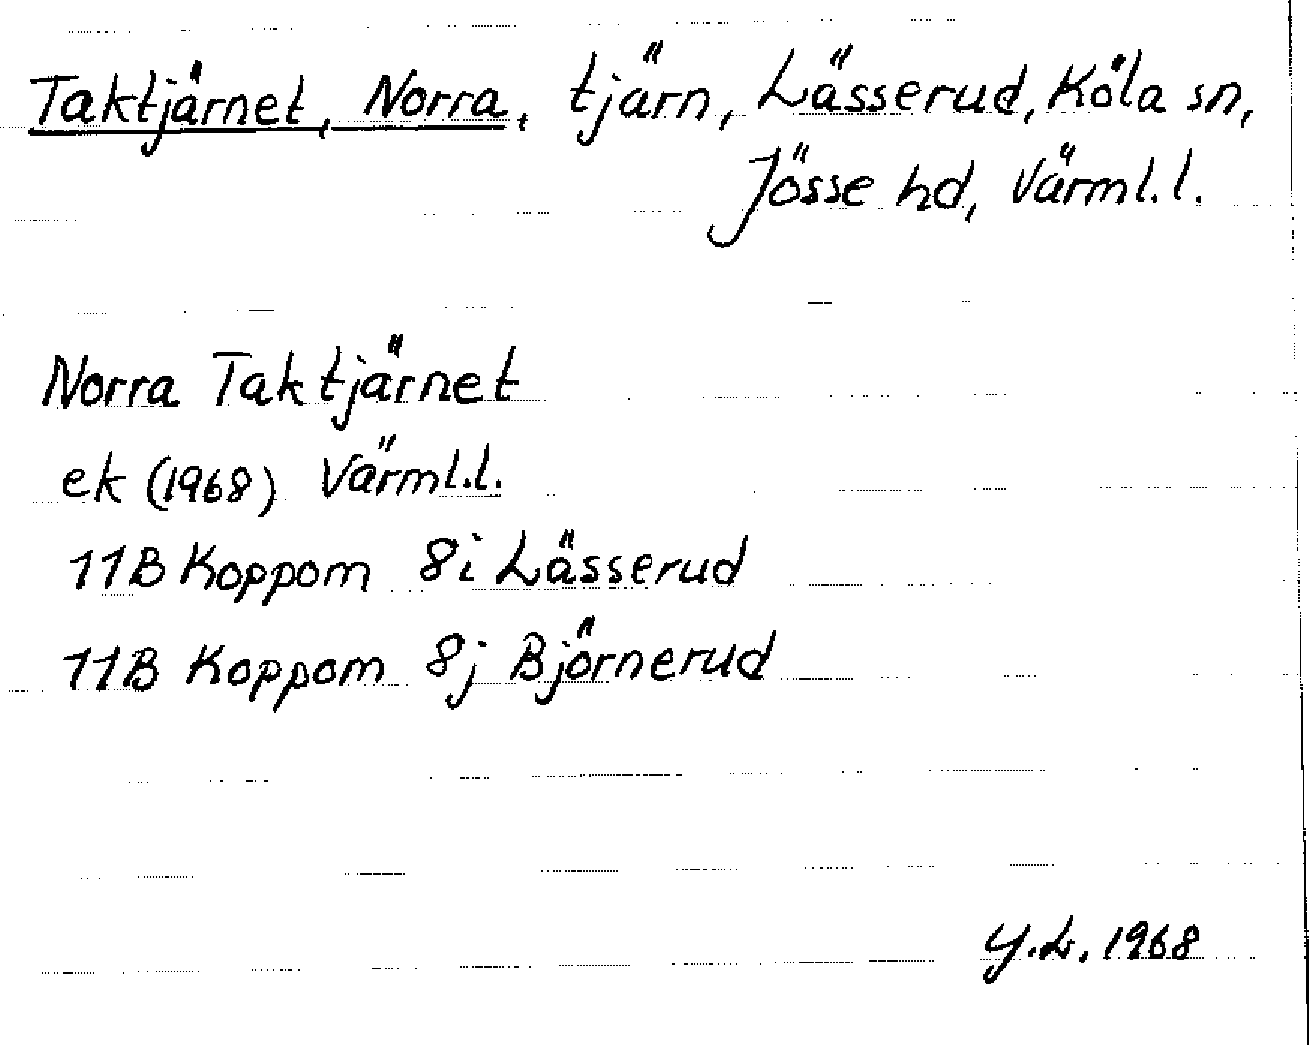 Taktjärnet, Norra, tjärn, Lässerud, Köla sn,
Jösse hd, Värml.l.
Norra Taktjärnet
ek (1968) Värml.l.
11B Koppom 8i Lässerud
11B Koppom 8j Björnerud
Y.L. 1968